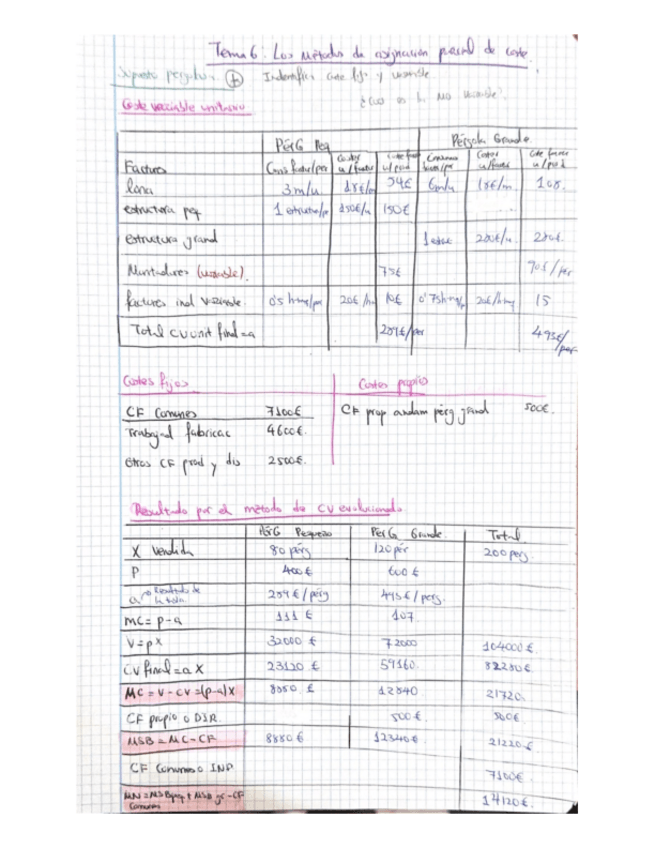 Tema 6: Los métodos de asignación parcial de coste.
Supuesto pergolas 1 Indentifica Coste fijo y variable
¿Cual es la No variable?
Coste variable unitario
PérG Peq Pérgola Grande
Factores Cons factor/per Costes u/factor Coste factor u/prod Consumo factor/per Costes u/factor Coste factor u/prod
lona 3m/u 18€/m 54€ 6m/u 18€/m 108
estructura peq 1 estructu/p 150€/u 150€
estructura grand 1 estruc 200€/u
Montadores (variable) 75€ 90€/per
factores ind variable 0'5 h maq/per 20€/h 10€ 0'75h mq/p 20€/hmq 15
Total CV unit final = a 289€/per 493€/per
Costes fijos Costes propio
CF Comunes 7100€ CF prop andam pérg grand 500€.
Trabajad fabricac 4600€.
Otros CF prod y dis 2500€.
Resultado por el método de CV evolucionado
PérG Pequeño PérG Grande Total
X Vendida 80 pérg 120 pér 200 perg.
P 400€ 600€
a Resultado de la tabla 289€/pérg 493€/perg.
MC = p-a 111€ 107
V = pX 32000€ 72000 104000€.
CV final = a X 23120€ 59160. 82280€.
MC = V - CV = (p-a)X 8880 € 12840 21720.
CF propio o DIR. 500€. 500€.
MSB = MC - CF 8880€ 12340€ 21220€
CF Comunes o IND 7100€.
MN = MSB peq + MSB gr - CF Comunes 14120€.